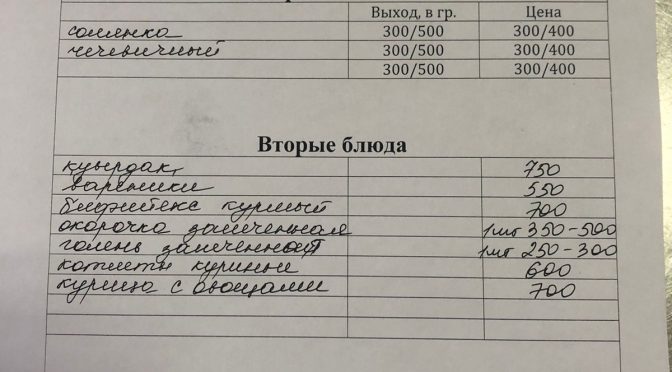 Выход, в гр. Цена
солянка 300/500 300/400
чечевичный 300/500 300/400
300/500 300/400
Вторые блюда
куырдак 750
вареники 550
бифштекс куриный 700
окорочка запеченная 1шт 350-500
голень запеченная 1шт 250-300
котлеты куриные 600
курица с овощами 700